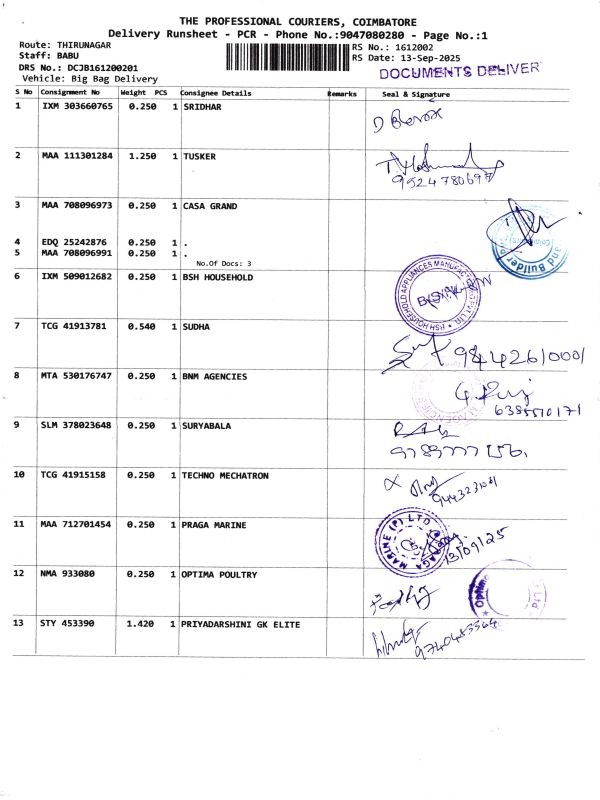 THE PROFESSIONAL COURIERS, COIMBATORE
Delivery Runsheet - PCR - Phone No.:9047080280 - Page No.:1
Route: THIRUNAGAR
RS No.: 1612002
Staff: BABU
RS Date: 13-Sep-2025
DRS No.: DCJB161200201
DOCUMENTS DELIVER
Vehicle: Big Bag Delivery
S No Consignment No Weight PCS Consignee Details Remarks Seal & Signature
1 IXM 303660765 0.250 1 SRIDHAR
2 MAA 111301284 1.250 1 TUSKER
9524780697
3 MAA 708096973 0.250 1 CASA GRAND
and Builder
4 EDQ 25242876 0.250 1 .
5 MAA 708096991 0.250 1 .
No.Of Docs: 3
6 IXM 509012682 0.250 1 BSH HOUSEHOLD
BSH HOUSEHOLD APPLIANCES MANUFACTURING PVT. LTD.
7 TCG 41913781 0.540 1 SUDHA
9844261000
8 MTA 530176747 0.250 1 BNM AGENCIES
AGENCIES
6385510171
9 SLM 378023648 0.250 1 SURYABALA
10 TCG 41915158 0.250 1 TECHNO MECHATRON
11 MAA 712701454 0.250 1 PRAGA MARINE
PRAGA MARINE (P) LTD
13/09/25
12 NMA 933080 0.250 1 OPTIMA POULTRY
Optima
Ltd
13 STY 453390 1.420 1 PRIYADARSHINI GK ELITE